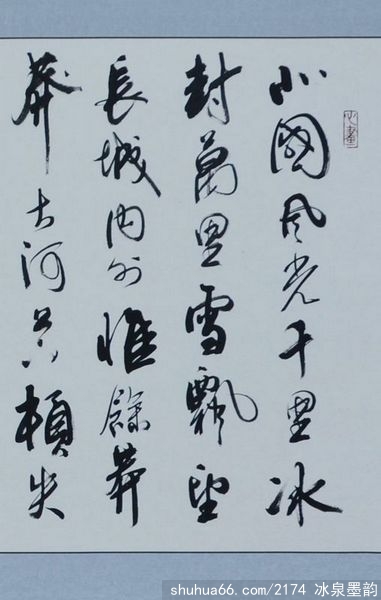 心畫
北國風光千里冰
封萬里雪飄望
長城內外惟餘莽
莽大河上下頓失
shuhua66.com/2174 冰泉墨韵